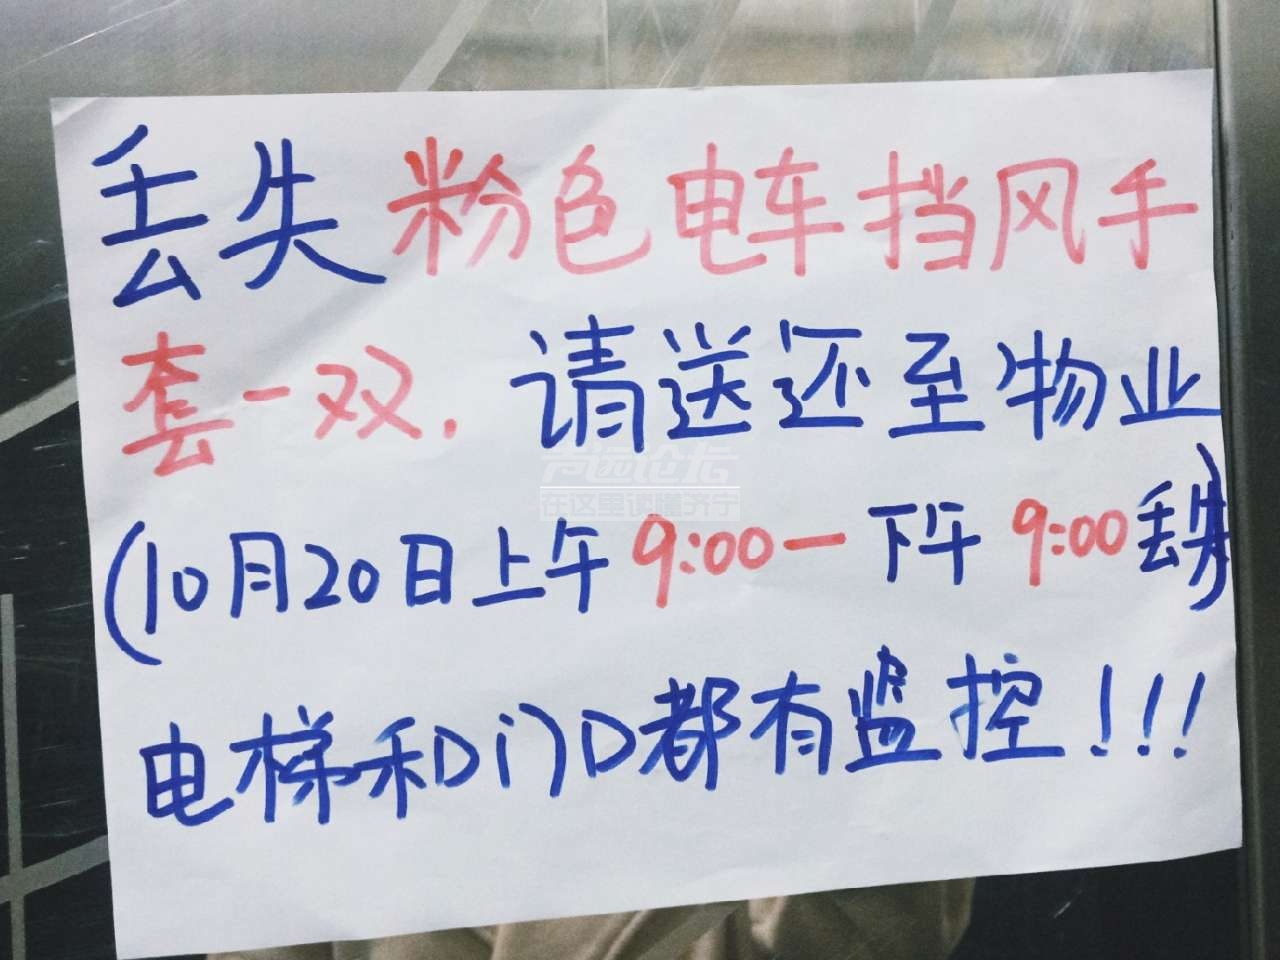 丢失粉色电车挡风手
套一双.请送还至物业
声远论坛
在这里读懂济宁
(10月20日上午9:00一下午9:00丢失)
电梯和门口都有监控!!!